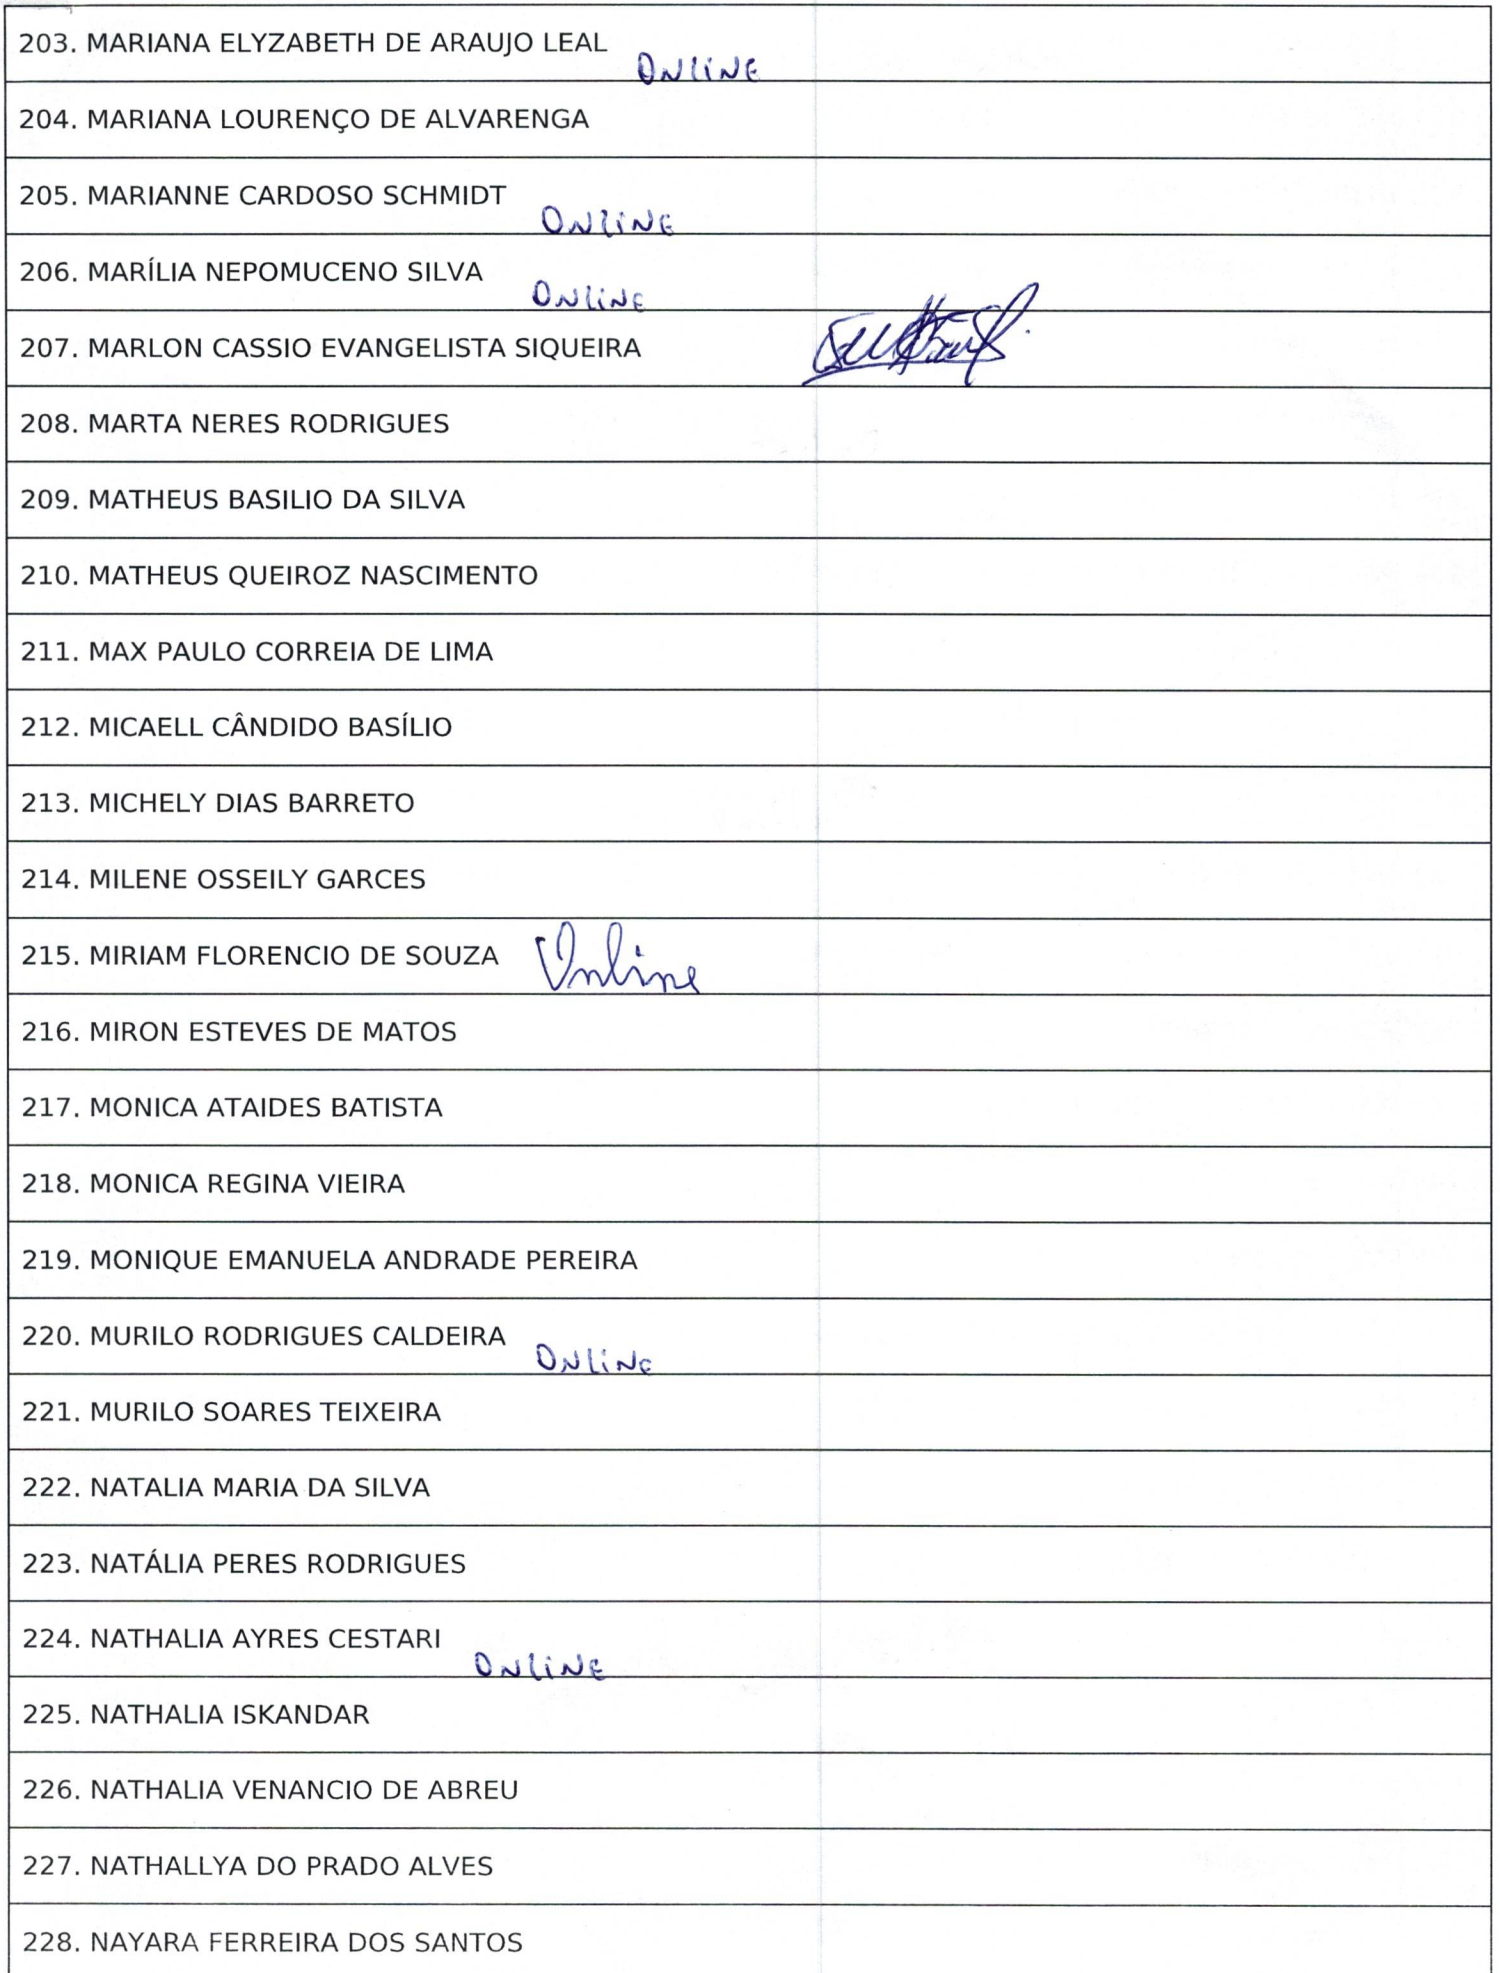 203. MARIANA ELYZABETH DE ARAUJO LEAL ONLINE
204. MARIANA LOURENÇO DE ALVARENGA
205. MARIANNE CARDOSO SCHMIDT ONLINE
206. MARÍLIA NEPOMUCENO SILVA ONLINE
207. MARLON CASSIO EVANGELISTA SIQUEIRA
208. MARTA NERES RODRIGUES
209. MATHEUS BASILIO DA SILVA
210. MATHEUS QUEIROZ NASCIMENTO
211. MAX PAULO CORREIA DE LIMA
212. MICAELL CÂNDIDO BASÍLIO
213. MICHELY DIAS BARRETO
214. MILENE OSSEILY GARCES
215. MIRIAM FLORENCIO DE SOUZA Online
216. MIRON ESTEVES DE MATOS
217. MONICA ATAIDES BATISTA
218. MONICA REGINA VIEIRA
219. MONIQUE EMANUELA ANDRADE PEREIRA
220. MURILO RODRIGUES CALDEIRA ONLINE
221. MURILO SOARES TEIXEIRA
222. NATALIA MARIA DA SILVA
223. NATÁLIA PERES RODRIGUES
224. NATHALIA AYRES CESTARI ONLINE
225. NATHALIA ISKANDAR
226. NATHALIA VENANCIO DE ABREU
227. NATHALLYA DO PRADO ALVES
228. NAYARA FERREIRA DOS SANTOS